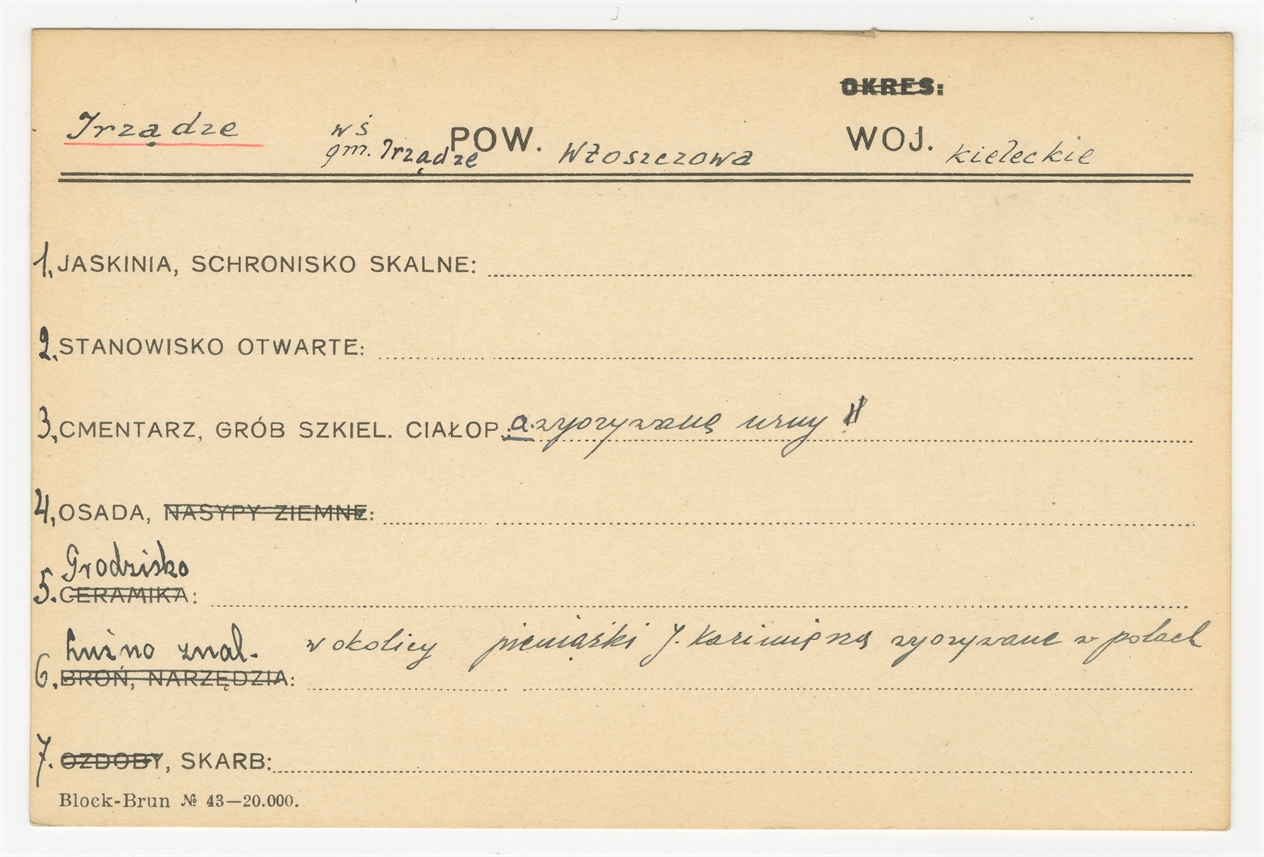 OKRES:
Irządze wś POW. Włoszczowa WOJ. kieleckie
gm. Irządze
1. JASKINIA, SCHRONISKO SKALNE:
2. STANOWISKO OTWARTE:
3. CMENTARZ, GRÓB SZKIEL. CIAŁOP.: a. wyorywane urny
4. OSADA, NASYPY ZIEMNE:
Grodzisko
5. CERAMIKA:
Luźno znal. w okolicy pieniążki J. Kazimierza wyorywane w polach
6. BROŃ, NARZĘDZIA:
7. OZDOBY, SKARB:
Block-Brun № 43—20.000.